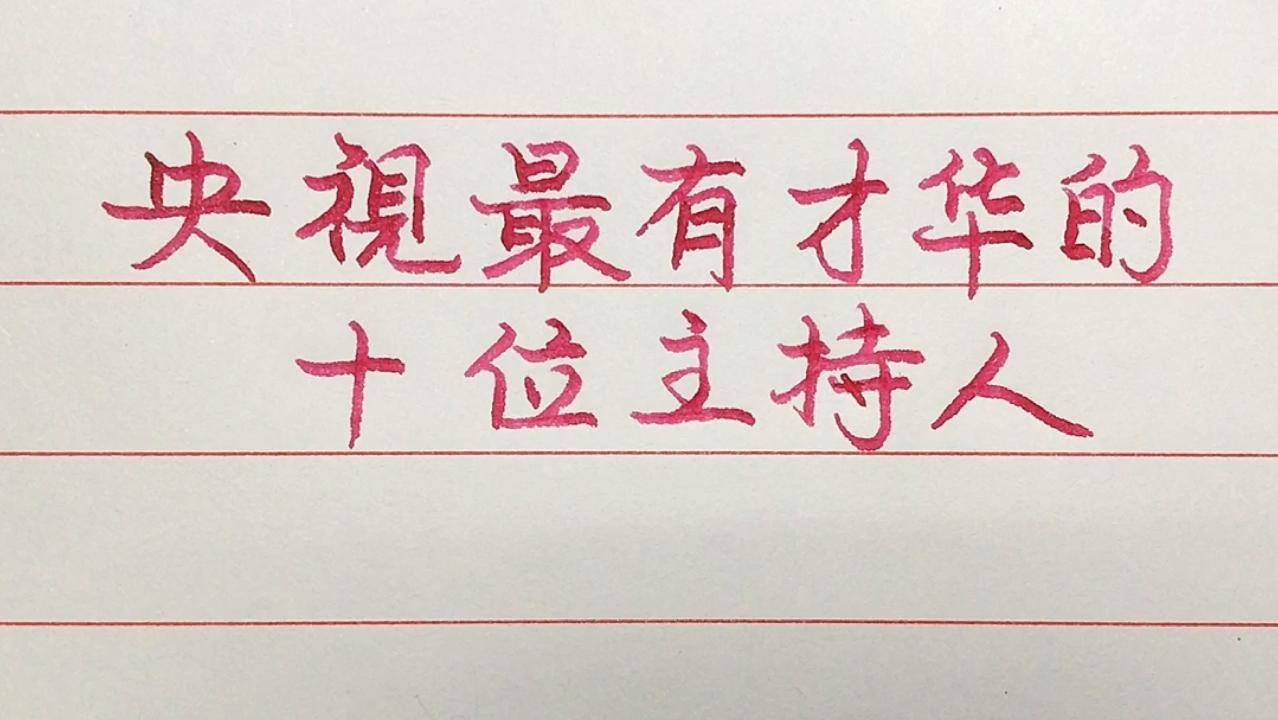 央視最有才华的
十位主持人